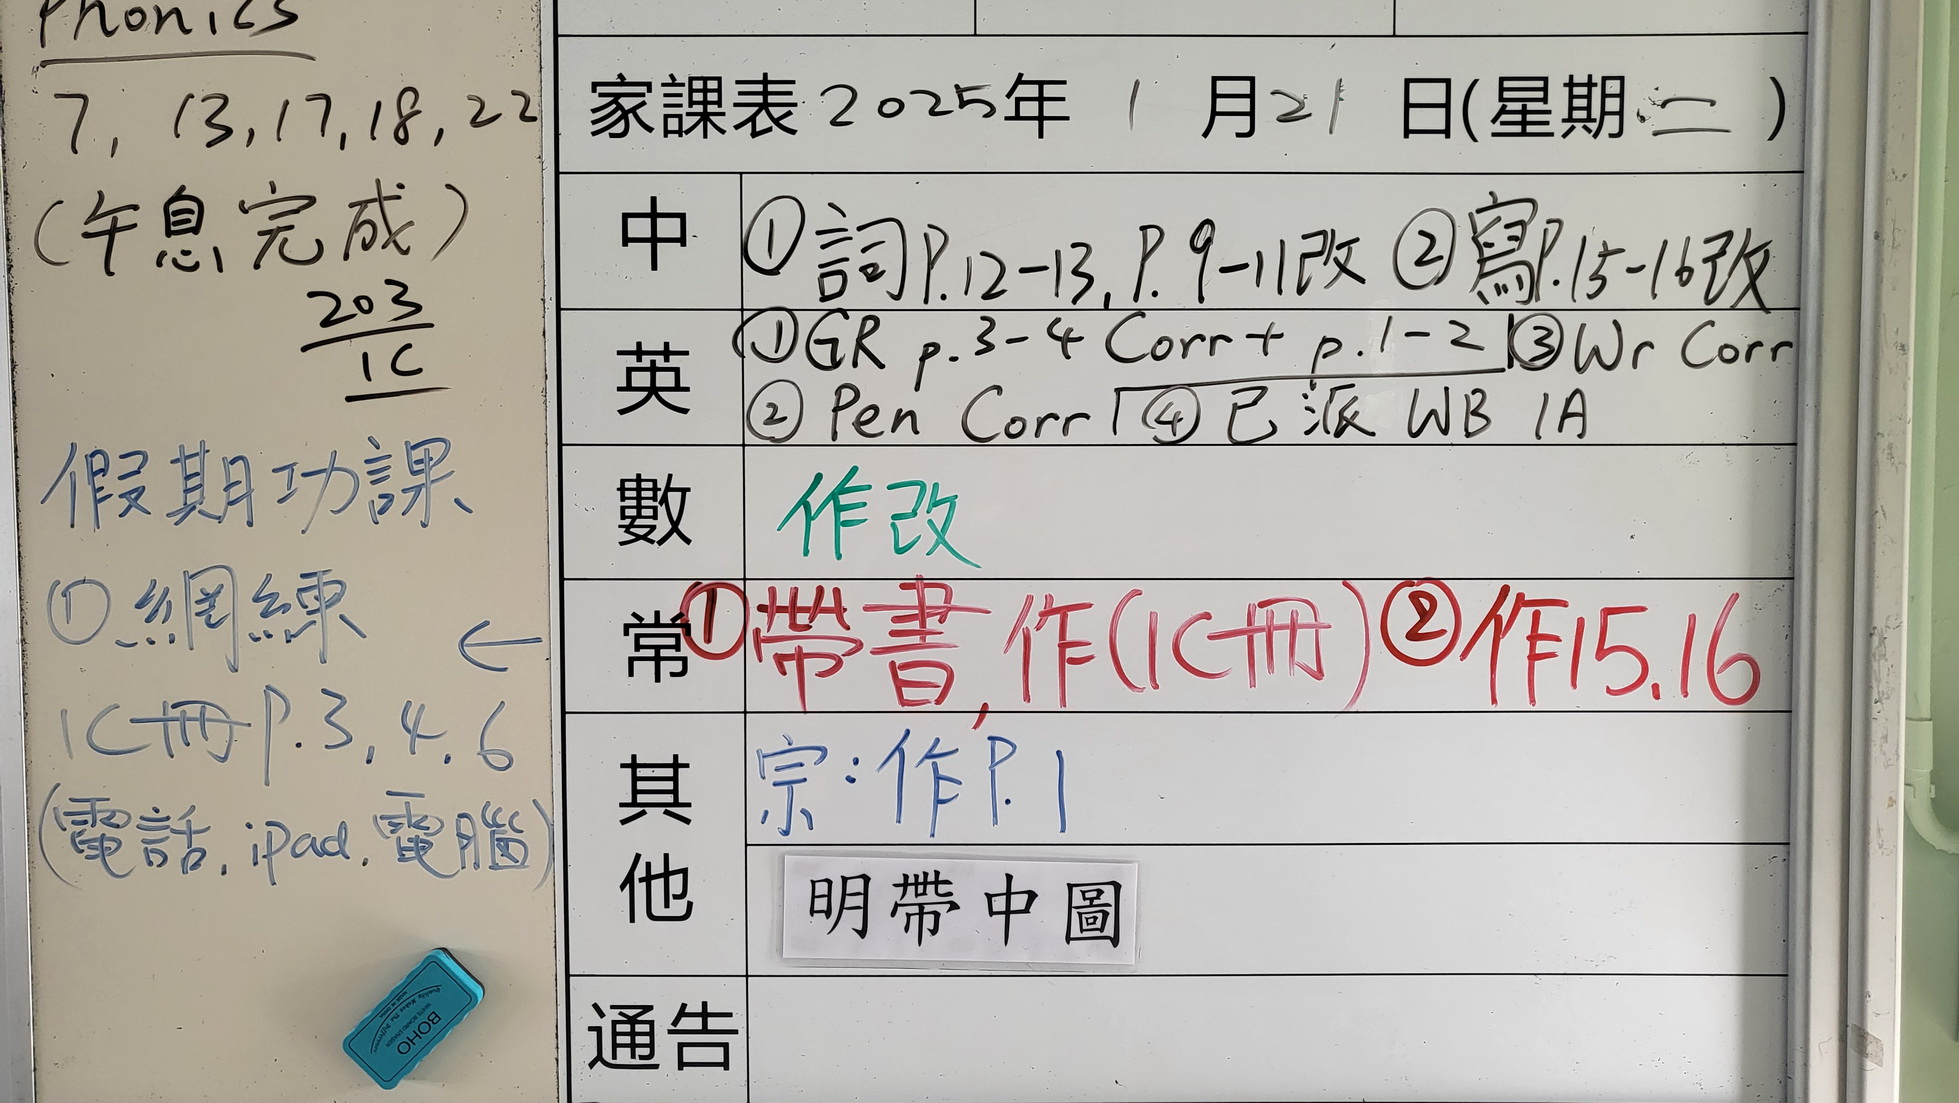 Phonics
7, 13, 17, 18, 22
(午息完成)
203
1C
假期功課
①網練 ←
1C冊P.3, 4, 6
(電話, iPad, 電腦)
BOHO
家課表2025年 1 月21 日(星期二)
中 ①詞P.12-13, P.9-11改 ②寫P.15-16改
英 ①GR p.3-4 Corr + p.1-2 ③Wr Corr
②Pen Corr ④已派 WB 1A
數 作改
常 ①帶書, 作(1C冊) ②作15.16
其他 宗:作P.1
明帶中圖
通告